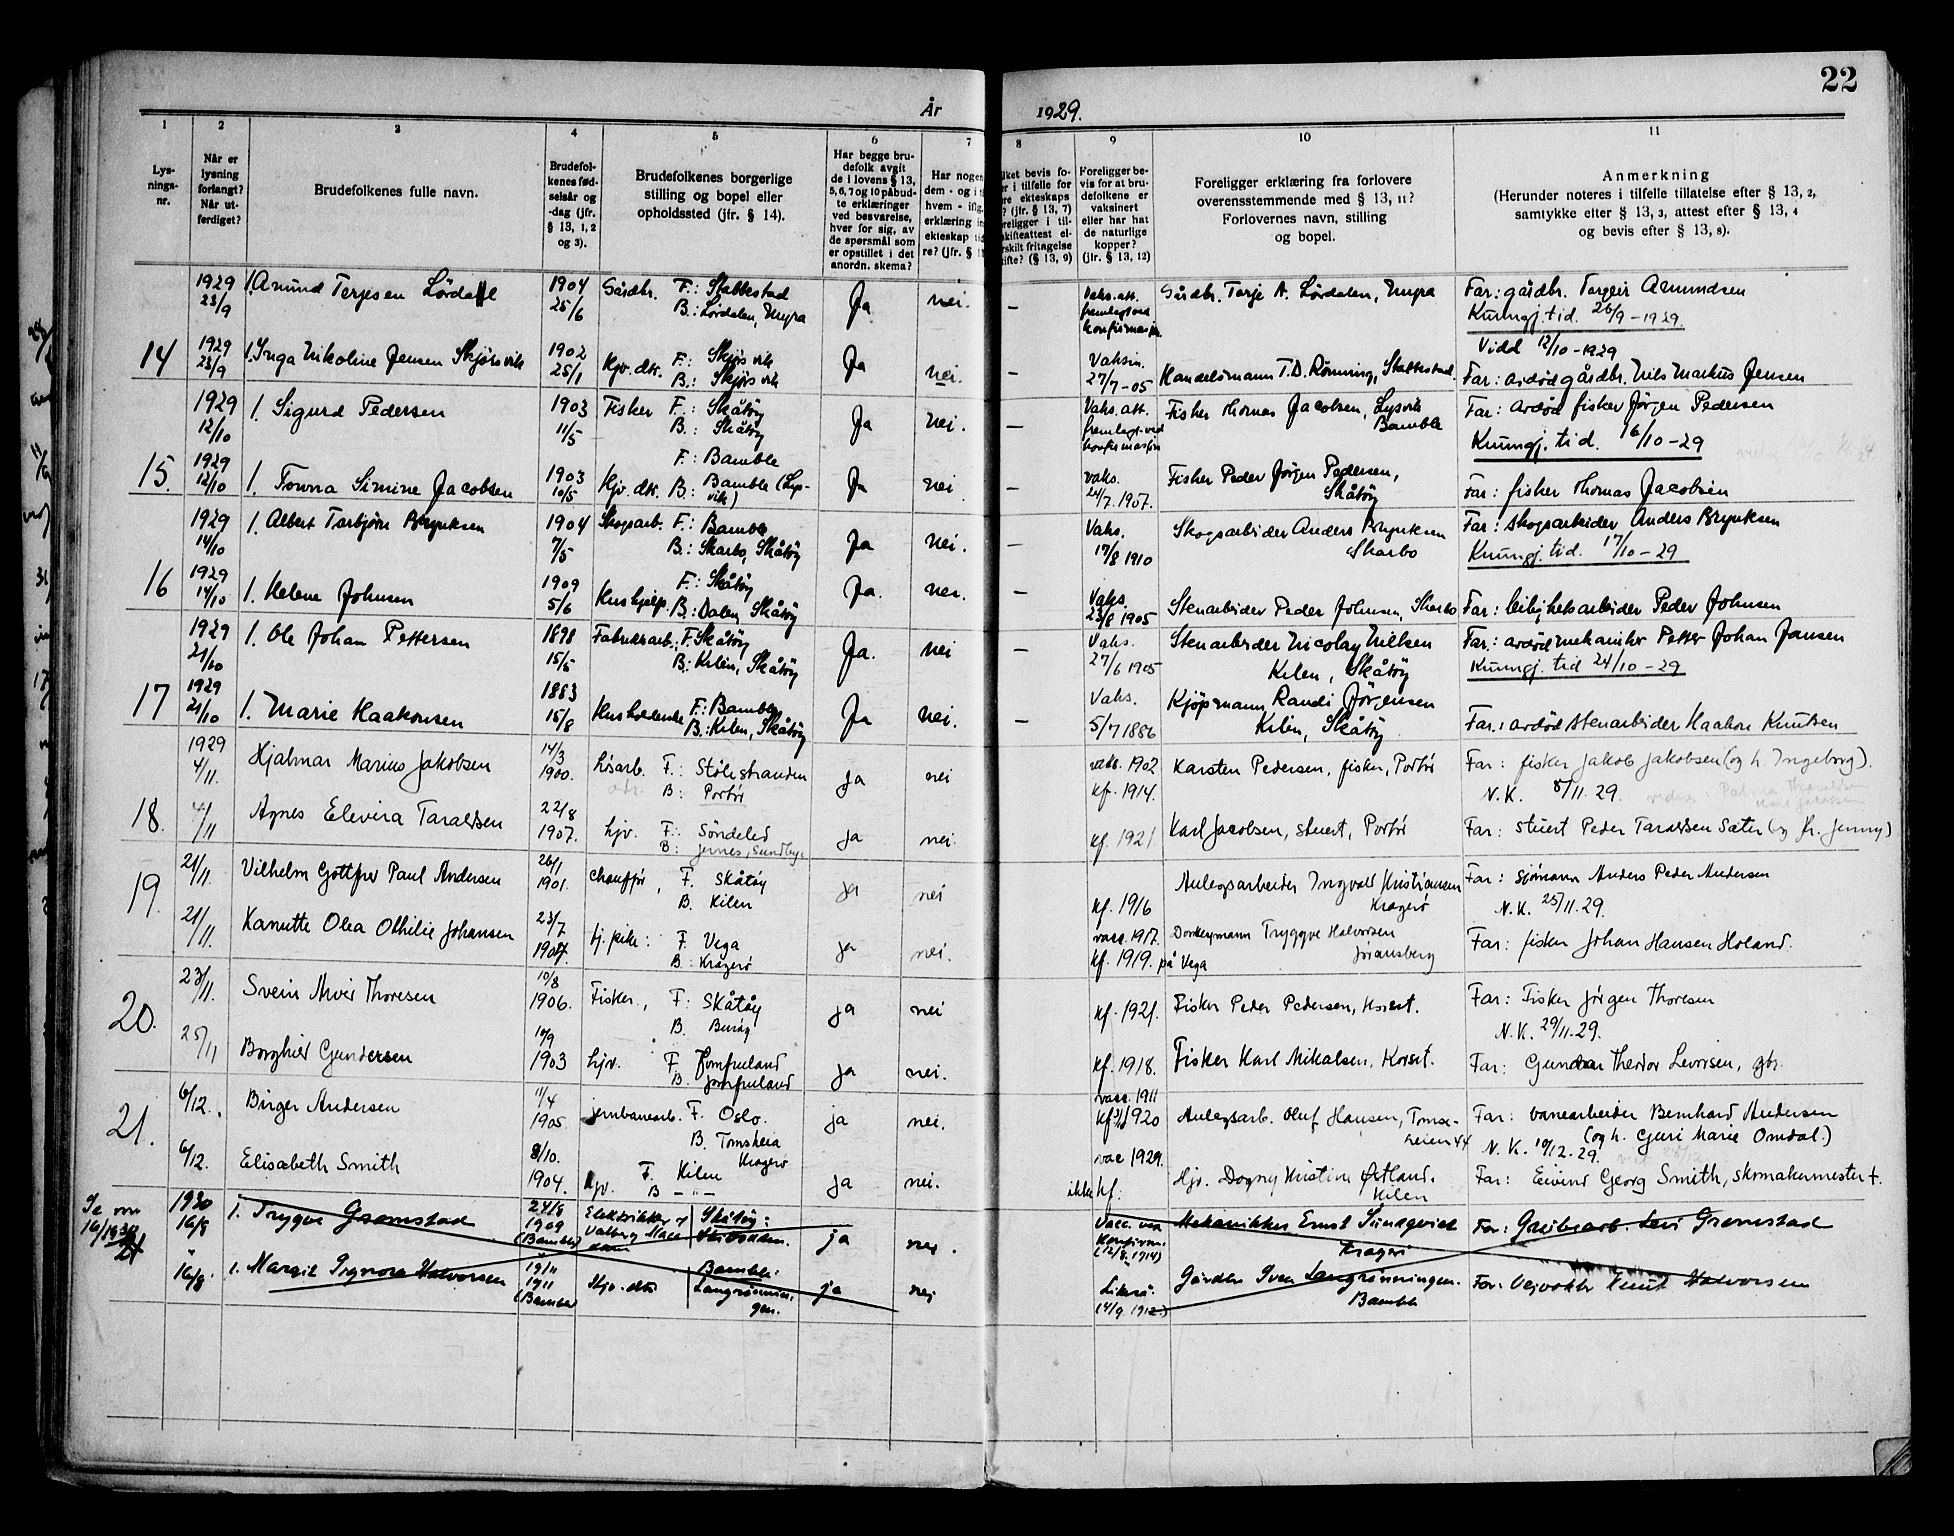 22
År 1929.
1 2 3 4 5 6 7 8 9 10 11
Lys-
nings-
nr.
Når er
lysning
forlangt?
Når ut-
ferdiget?
Brudefolkenes fulle navn.
Brudefol-
kenes fød-
selsår og
-dag (jfr.
§ 13, 1, 2
og 3).
Brudefolkenes borgerlige
stilling og bopel eller
opholdssted (jfr. § 14).
Har begge bru-
defolk avgit
de i lovens § 13,
5, 6, 7 og 10 påbud-
te erklæringer
ved besvarelse,
hver for sig, av
de spørsmål som
er opstillet i det
anordn. skema?
Har nogen
dem - og i
hvem - ifig.
erklæring in
ekteskap tid
re? (jfr. §
ket bevis fo-
r i tilfelle for
re ekteskaps
? (jfr. § 13, 7)
religger i til-
kifteattest el-
rskilt fritagelse
ifte? (§ 13, 9)
Foreligger be-
vis for at bru-
defolkene er
vaksinert
eller har hat
de naturlige
kopper?
(jfr. § 13, 12)
Foreligger erklæring fra forlovere
overensstemmende med § 13, 11?
Forlovernes navn, stilling
og bopel.
Anmerkning
(Herunder noteres i tilfelle tillatelse efter § 13, 2,
samtykke efter § 13, 3, attest efter § 13, 4
og bevis efter § 13, 8).
1929 23/9 1. Amund Terjesen Lördal 1904 25/6 Gårdbr. F.: Stabbestad B.: Lördalen, Ja nei. — Vaks. att. fremlagt ved konfirmasjon Gårdbr. Tarje A. Lördalen, Far: gårdbr. Targeir Amundsen
Kunngj. tid. 26/9 - 1929.
Vidd 12/10 - 1929
14 1929 23/9 1. Inga Nikoline Jensen Skjörsvik 1902 25/1 Hjv. dtr. F.: Skjörsvik B.: Skjörsvik Ja nei. — Vaksin. 27/7 - 05 Handelsmann T. D. Rönning, Stabbestad. Far: avdöd gårdbr. Nils Markus Jensen
1929 12/10 1. Sigurd Pedersen 1903 11/5 Fisker F.: Skåtöy B.: Skåtöy Ja nei. — Vaks. att. fremlagt ved konfirmasjon Fisker Thomas Jacobsen, Lysvik Bamble Far: avdød fisker Jörgen Pedersen
Kunngj. tid. 16/10 - 29
15. 1929 12/10 1. Towna Simine Jacobsen 1903 10/5 Hjv. dtr. F.: Bamble B.: Bamble (Lys-
vik) Ja nei — vaks. 24/7 1907. Fisker Peder Jörgen Pedersen, Skåtöy Far: fisker Thomas Jacobsen
1929 14/10 1. Albert Torbjörn Brynksen 1904 7/5 Skogsarb. F.: Bamble B.: Skarbo, Skåtöy Ja nei. — Vaks. 17/8 1910 Skogsarbeider Anders Brynksen Skarbo Far: skogsarbeider Anders Brynksen
Kunngj. tid. 17/10 - 29
16 1929 14/10 1. Helene Johnsen 1909 5/6 Hushjelp F.: Skåtöy B.: Dalen, Skåtöy Ja. nei. Vaks. 23/8 1905 Stenarbeider Peder Johnsen, Skarbo Far: leilighetsarbeider Peder Johnsen
1929 21/10 1. Ole Johan Pettersen 1898 15/5 Fabrikkarb. F. Skåtöy B.: Kilen, Skåtöy Ja. nei — Vaks. 27/6 1905 Stenarbeider Nicolay Nilsen Kilen, Skåtöy Far: avdöd mekaniker Petter Johan Jansen
Kunngj. tid 24/10 - 29
17 1929 21/10 1. Marie Haakonsen 1883 15/8 Husholderske F.: Bamble B.: Kilen, Skåtöy Ja nei. — Vaks. 5/7 1886 Kjöpmann Randi Jörgensen Kilen, Skåtöy Far: avdöd stenarbeider Haakon Knutsen
1929 4/11. Hjalmar Marius Jakobsen 14/3 1900. lösarb. F.: Stölestranden B: Portör ja nei vaks. 1902 kf. 1914. Karsten Pedersen, fisker, Portör Far: fisker Jakob Jakobsen (og h. Ingeborg).
N.K. 8/11. 29.
18. 4/11 Agnes Elevira Taraldsen 22/8 1907. hjv. F.: Söndeled B: Jernes, Sundby. ja nei. kf. 1921 Karl Jacobsen, stuert, Portör Far: stuert Peder Taraldsen Sæter (og fr. Jenny)
19. 21/11. Vilhelm Gottfred Paul Andersen 26/1 1901. chaufför, F. Skåtöy B. Kilen ja nei kf. 1916 Anlegsarbeider Ingvald Kristiansen Kragerø Far: sjömann Anders Peder Andersen
N.K. 25/11. 29.
21/11. Kanutte Olea Othilie Johansen 23/7 1904. tj. pike: F. Vega B. Kragerö ja nei. vacc. 1917. kf. 1919. på Vega Donkeymann Tryggve Halvorsen Jöransberg Far: fisker Johan Hansen Holand.
20. 23/11. Svein Alver Thoresen 10/8 1906. Fisker, F: Skåtöy B. Beröy ja nei kf. 1921. Fisker Peder Pedersen, Korset. Far: Fisker Jörgen Thoresen
N.K. 29/11. 29.
25/11 Borghild Gundersen 14/9 1903 hjv. F. Jomfruland B. Jomfruland ja nei. kf. 1918. Fisker Karl Mikalsen, Korset. Far: Gunder Theodor Levorsen, gbr.
21. 6/12. Birger Andersen 11/4 1905 jernbanearb. F. Oslo. B. Tomsheia Kragerö ja nei. vacc. 1911 kf. 1920 Anlegsarb. Oluf Hansen, Far: banearbeider Bernhard Andersen
(og h. Guri Marie Omdal.)
N.K. 10/12. 29.
6/12. Elisabeth Smith 8/10. 1904. hjv. F. Kilen B — " — ja nei. vac 1929. ikke kf. Hjv. Dagny Kristine Östland. Kilen Far: Eivind Georg Smith, skomakermester †.
Se om 16/1930 1930 16/8 1. Trygve Gromstad 24/8 1909 (Bamble) Elektrikker Skåtöy: ja nei. Vacc. ved Konfirm. (12/8. 1914) Mekanikker Ernst Sundqvist Kragerö Far: Levi Gromstad
" 16/8. 1. Margit Signora Halvorsen 19/11 1911 (Bamble) Hjv. dtr Bamble: Langrönnin-
gen. ja nei Likeså: 14/9. 1912) Gårdbr Sven Langrönningen. Bamble Far: Veivokter Knut Halvorsen